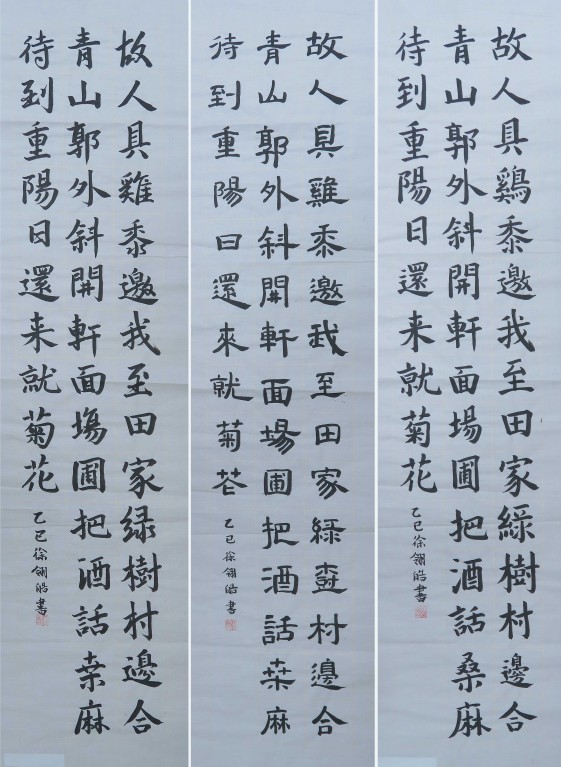 故人具鷄黍邀我至田家綠樹村邊合
青山郭外斜開軒面場圃把酒話桑麻
待到重陽日還来就菊花 乙巳徐翎皓書
故人具雞黍邀我至田家綠樹村邊合
青山郭外斜開軒面場圃把酒話桒麻
待到重陽日還來就菊花 乙巳徐翎皓書
故人具雞黍邀我至田家绿樹村邊合
青山郭外斜開軒面塲圃把酒話桒麻
待到重陽日還来就菊花 乙巳徐翎皓書